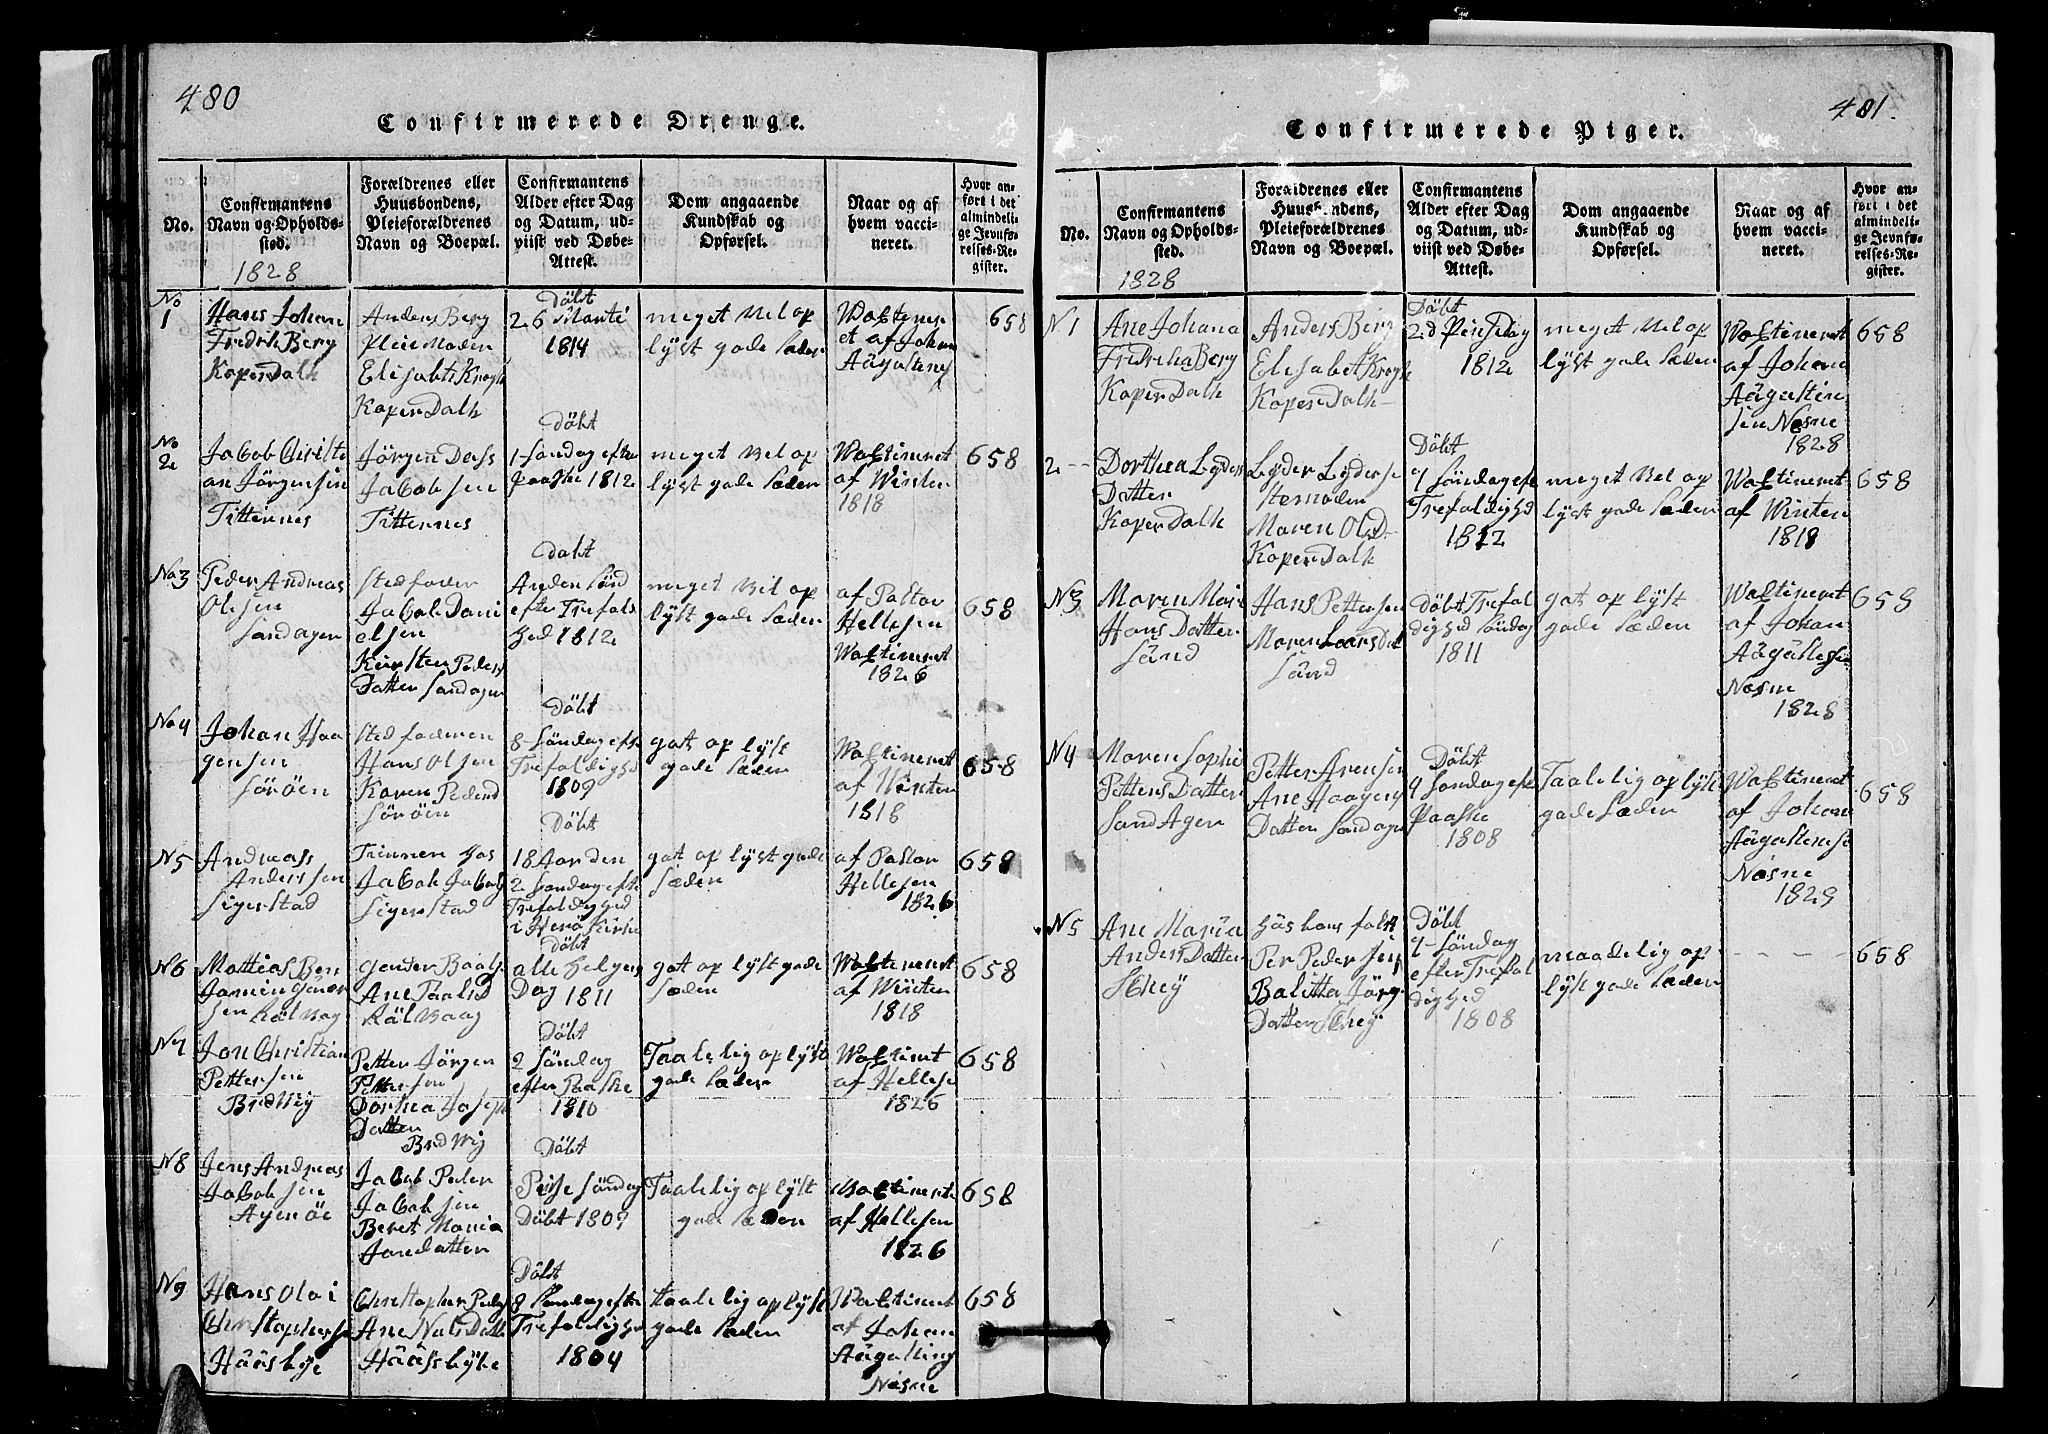 480
Confirmerede Drenge.
No.
Confirmantens
Navn og Opholds-
sted.
1828
Forældrenes eller
Huusbondens,
Pleieforældrenes
Navn og Boepæl.
Confirmantens
Alder efter Dag
og Datum, ud-
viist ved Døbe-
Attest.
Dom angaaende
Kundskab og
Opførsel.
Naar og af
hvem vacci-
neret.
Hvor an-
ført i det
almindeli-
ge Jevnfø-
relses-Re-
gister.
No
1
Hans Johan
Fredrik Berg
Koper Dalh
Anders Berg
Pleie Moder
Elisabet Krogh
Koper Dalh
Döbt
26 Marti
1814
meget Vel op
lÿst gode Sæder
et af Johan
658
No
2
Jacob Christi
an Jörgensen
Titternes
Jörgen
Jacobsen
Titternes
Döbt
1-Söndag efter
Paaske 1812
meget Vel op
lÿst gode Sæder
Waltineret
af Winter
1818
658
No 3
Peder Andreas
Olesen
Sandagen
Stedfader
Jacob Dani
elsen
Kirsten Peders
Datter Sandagen
Döbt
Anden Sönd
efter Trefols
hed 1812
meget Vel op
lÿst gode Sæder
af Pastor
Hellesen
Waltineret
1826
658
No 4
Johan Haa
gensen
Söröen
Stedfaderen
Hans Olsen
Karen Pedersd
Söröen
Döbt
8-Söndag efte
Trefoldighed
1809
got op lÿst
gode Sæder
Waltineret
af Winter
1818
658
N5
Andreas
Anderssen
Sigerstad
Jacob Jacobs
Sigerstad
Döbt
18
2 Söndag efte
Trefoldighed
i Herö Kirke
got op lÿst gode
Sæder
af Pastor
Hellesen
1826
658
N6
Mattias Ben
Jamin
sen
Ane
Döbt
alle Helgens
Dag 1811
got op lÿst gode
Sæder
Waltineret
af Winter
1818
658
N7
Jon Christian
Pettersen
BredWig
Petter Jörgen
Pettersen
Dorthea Joseph
Datter
BredWig
Döbt
2 Söndag
efter Paaske
1810
Taalelig op lÿst
gode Sæder
Waltineret
af Hellese
1826
658
N8
Jens Andreas
Jacobsen
Jacob Peder
Jacobsen
Beret Maria
Jansdatter
Döbt
Söndag
Döbt 1809
Taalelig op lÿst
gode Sæder
Waltineret
af Hellesen
1826
658
N9
Hans Olai
Christophersen
Christopher Peders
Ane Nilsdatte
Döbt
8 Söndag efte
Trefoldighed
1804
Taalelig op lÿst
gode Sæder
Waltineret
af Johan
Nesne
658
481.
Confirmerede Piger.
No.
Confirmantens
Navn og Opholds-
sted.
1828
Forældrenes eller
Huusbondens,
Pleieforældrenes
Navn og Boepæl.
Confirmantens
Alder efter Dag
og Datum, ud-
viist ved Døbe-
Attest.
Dom angaaende
Kundskab og
Opførsel.
Naar og af
hvem vacci-
neret.
Hvor an-
ført i det
almindeli-
ge Jevnfø-
relses-Re-
gister.
N1
Ane Johana
Fredrika Berg
Koper Dalh
Anders Berg
Elisabet Krogh
Koper Dalh
Döbt
2d Pinsdag
1812
meget Vel op
lÿst gode Sæder
Waltineret
af Johan
Aügustin
sen Nesne
1828
658
2
Dorthea Lyders
Datter
Koper Dalh
Lyder Lyderse
Stemoder
Maren Olsd
Koper Dalh
Döbt
Söndag efe
Trefoldighd
1812
meget Vel op
lÿst gode Sæder
Waltineret
af Winter
1818
658
No 3
Maren Mari
Hans Datter
Sünd
Hans Pettersen
Maren Larsdat
Sünd
Döbt Trefol
dighed Söndag
1811
got op lÿst
gode Sæder
Waltineret
af Johan
Nesne
1828
658
N4
Maren Sophi
Petters Datter
Sand Agen
Petter Arensen
Ane Haagens
Datter Sandagen
Döbt
Söndag efe
Paaske
1808
Taalelig op lÿst
gode Sæder
Waltineret
af Johan
Aügustense
Nesne
658
N5
Ane Maria
Anders Datter
Per Pedersen
Balitta Jörg
Datter
Döbt
Söndag
efter Trefol
dighed
1808
maadelig op
lÿst gode Sæder
- - - -
658